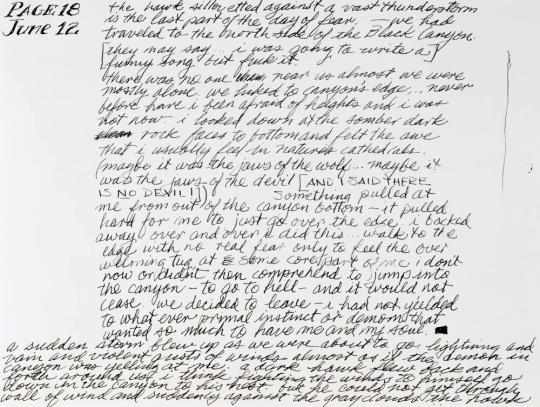 PAGE 18
JUNE 12
the hawk silhoetted against a vast thunderstorm
is the last part of the day of fear. — we had
traveled to the north side of the Black Canyon.
[they may say... i was going to write a]
funny song but fuck it.
there was no one near us almost we were
mostly alone we hiked to canyon's edge... never
before have i been afraid of heights and i was
not now – i looked down at the somber dark
rock faces to bottom and felt the awe
that i usually feel in natures cathedrals.
(maybe it was the jaws of the wolf... maybe it
was the jaws of the devil [AND I SAID THERE
IS NO DEVIL!]) Something pulled at
me from out of the canyon bottom – it pulled
hard for me to just go over the edge i backed
away over and over i did this... walk to the
edge with no real fear only to feel the over
welming tug at some core part of me i don't
now or didn't then comprehend to jump into
the canyon – to go to hell – and it would not
cease we decided to leave – i had not yielded
to what ever prymal instinct or demons that
wanted so much to have me and my soul
a sudden storm blew up as we were about to go lightning and
rain and violent gusts of winds almost as if the demon in
canyon was yelling at me; a dark hawk flew back and
forth around us i think fighting the winds to himself go
down in the canyon to his nest but he could not get through
wall of wind and suddenly against the gray clouds the hawk